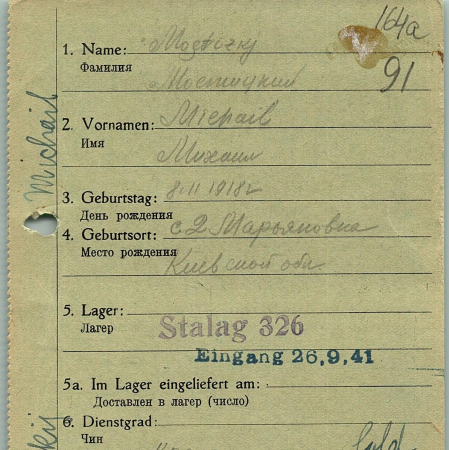 164a
91
1. Name: Mostizkij
Фамилия Мостицкий
2. Vornamen: Michail
Имя Михаил
3. Geburtstag: 8.11.1918г
День рождения
4. Geburtsort: с 2 Марьяновка
Место рождения Киевской обл.
5. Lager:
Лагер
Stalag 326
Eingang 26.9.41
5a. Im Lager eingeliefert am:
Доставлен в лагер (число)
6. Dienstgrad:
Чин
Michail
kij